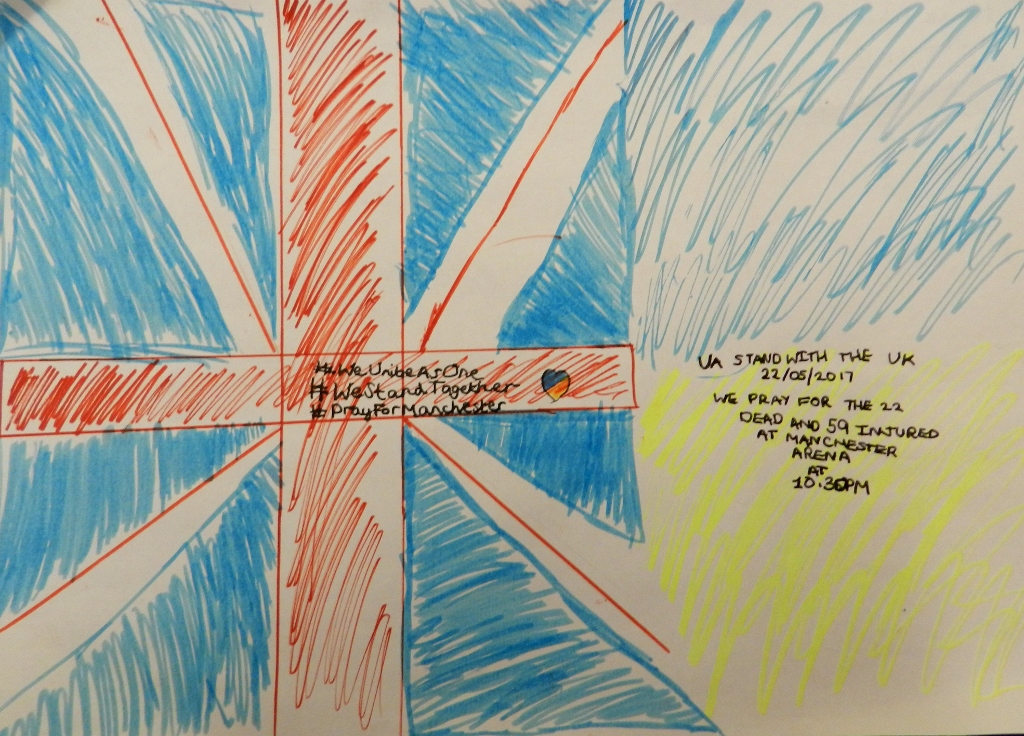 #WeUniteAsOne
#WeStandTogether
#PrayForManchester
UA STAND WITH THE UK
22/05/2017
WE PRAY FOR THE 22
DEAD AND 59 INJURED
AT MANCHESTER
ARENA
AT
10.30PM